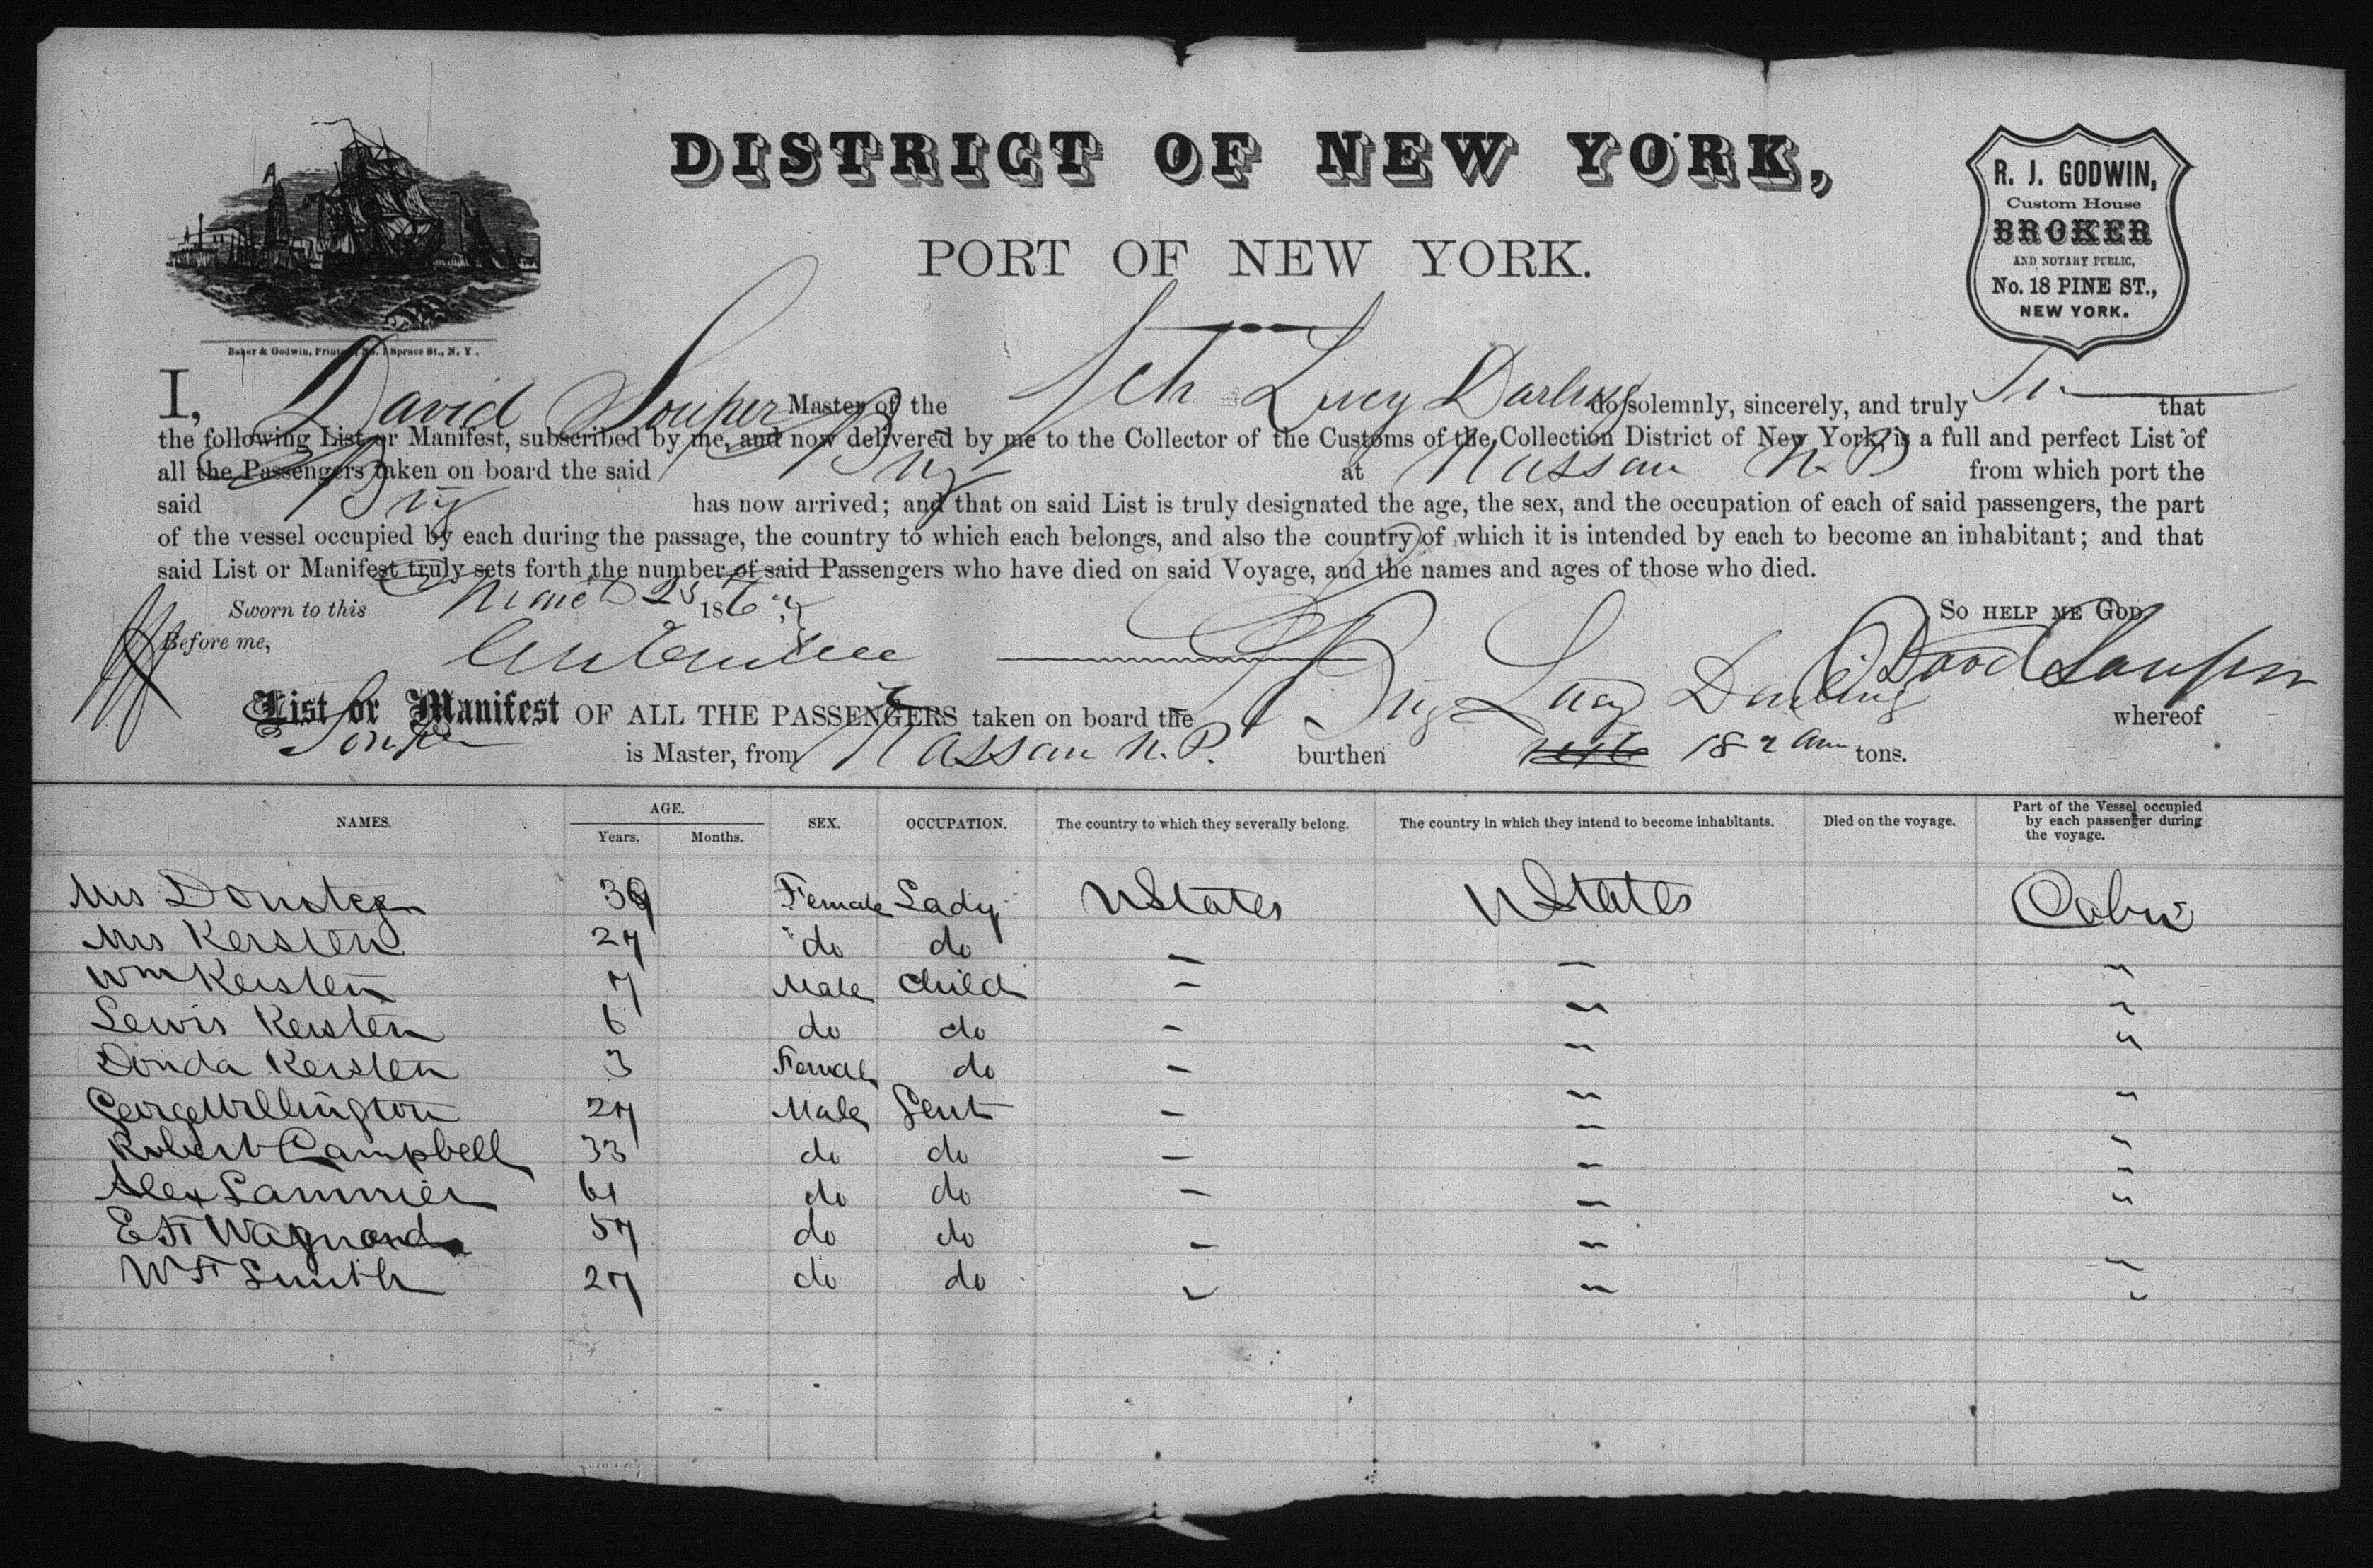 DISTRICT OF NEW YORK,
PORT OF NEW YORK.
R. J. GODWIN,
Custom House
BROKER
AND NOTARY PUBLIC,
No. 18 PINE ST.,
NEW YORK.
Baker & Godwin, Printers, No. 1 Spruce St., N. Y.
I, David Souper Master of the Sch Lucy Darling do solemnly, sincerely, and truly that
the following List or Manifest, subscribed by me, and now delivered by me to the Collector of the Customs of the Collection District of New York, is a full and perfect List of
all the Passengers taken on board the said Brig at Nassau N.P from which port the
said Brig has now arrived; and that on said List is truly designated the age, the sex, and the occupation of each of said passengers, the part
of the vessel occupied by each during the passage, the country to which each belongs, and also the country of which it is intended by each to become an inhabitant; and that
said List or Manifest truly sets forth the number of said Passengers who have died on said Voyage, and the names and ages of those who died.
Sworn to this 25 186 So HELP ME GOD.
Before me, David Souper
List or Manifest OF ALL THE PASSENGERS taken on board the Brig Lucy Darling whereof
Souper is Master, from Nassau N.P. burthen 182 tons.
NAMES. AGE. Years. Months. SEX. OCCUPATION. The country to which they severally belong. The country in which they intend to become inhabitants. Died on the voyage. Part of the Vessel occupied by each passenger during the voyage.
Mrs 39 Female Lady UStates UStates Cabin
Mrs Kersten 27 do do — — "
Wm Kersten 7 Male Child — " "
Lewis Kersten 6 do do — " "
Donda Kersten 3 Female do — " "
George Willington 27 Male Gent — " "
Robert Campbell 33 do do — " "
Alex Lammier 61 do do — " "
E H 57 do do — " "
W H Smith 27 do do " " "